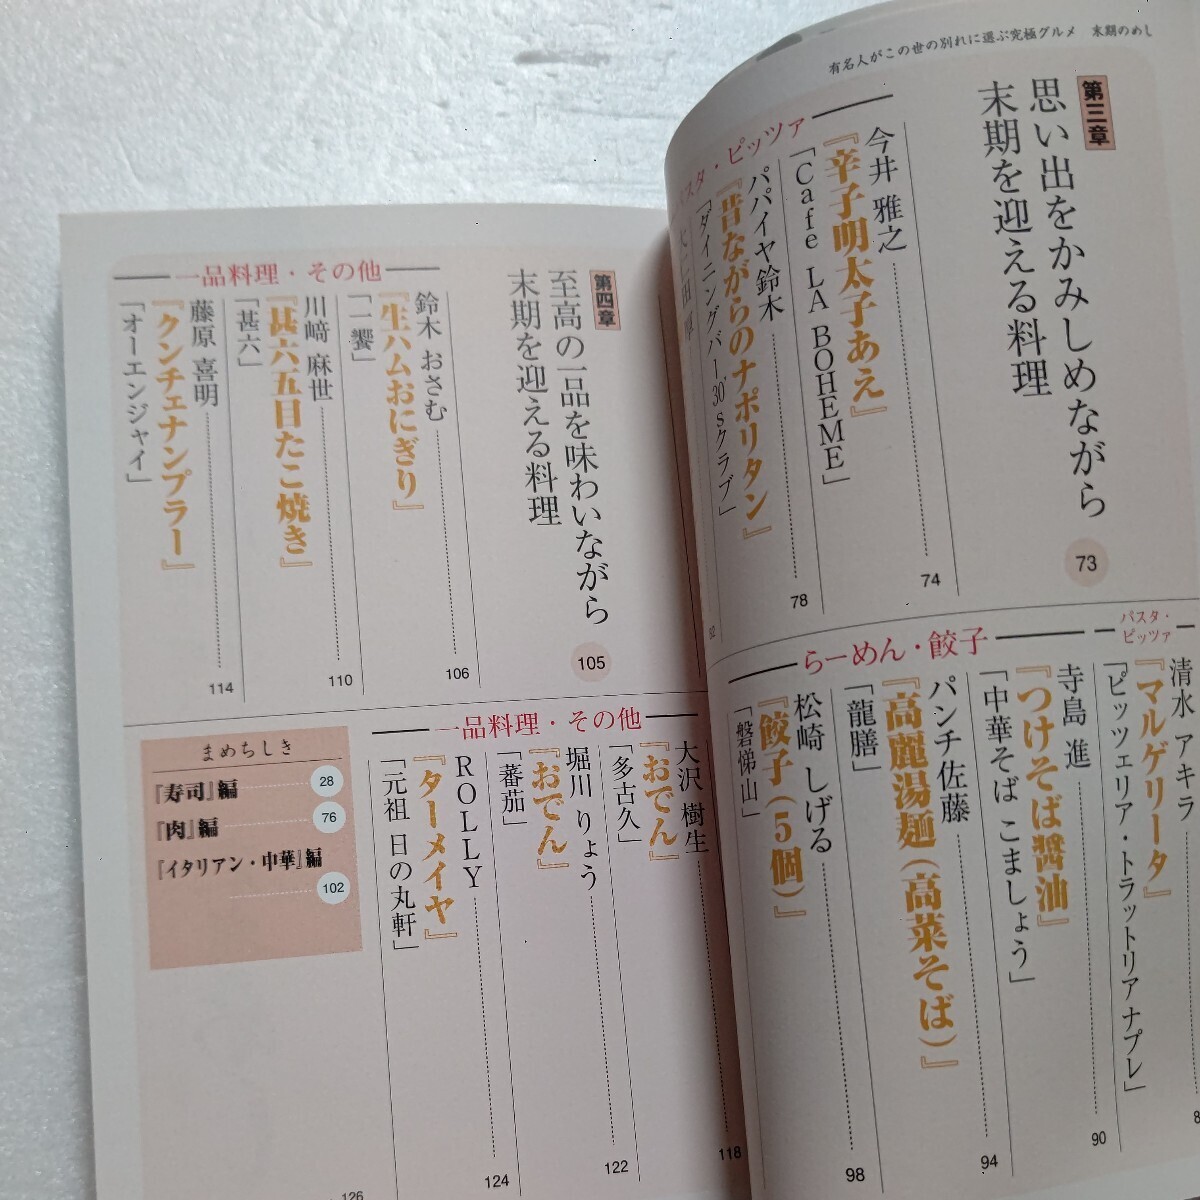 有名人がこの世の別れに選ぶ究極グルメ　末期のめし
第三章
思い出をかみしめながら
末期を迎える料理
73
パスタ・ピッツァ
今井 雅之
『辛子明太子あえ』
「Cafe LA BOHEME」
74
パパイヤ鈴木
『昔ながらのナポリタン』
「ダイニングバー30'sクラブ」
78
パスタ・ピッツァ
清水 アキラ
『マルゲリータ』
「ピッツェリア・トラットリア ナプレ」
らーめん・餃子
寺島 進
『つけそば醤油』
「中華そば こましょう」
90
パンチ佐藤
『高麗湯麺（高菜そば）』
「龍膳」
94
松崎 しげる
『餃子（5個）』
「磐悌山」
98
第四章
至高の一品を味わいながら
末期を迎える料理
105
一品料理・その他
鈴木 おさむ
『生ハムおにぎり』
「一饗」
106
川﨑 麻世
『甚六五目たこ焼き』
「甚六」
110
藤原 喜明
『クンチェナンプラー』
「オーエンジャイ」
114
一品料理・その他
大沢 樹生
『おでん』
「多古久」
118
堀川 りょう
『おでん』
「蕃茄」
122
ROLLY
『ターメイヤ』
「元祖 日の丸軒」
124
126
まめちしき
『寿司』編
28
『肉』編
76
『イタリアン・中華』編
102